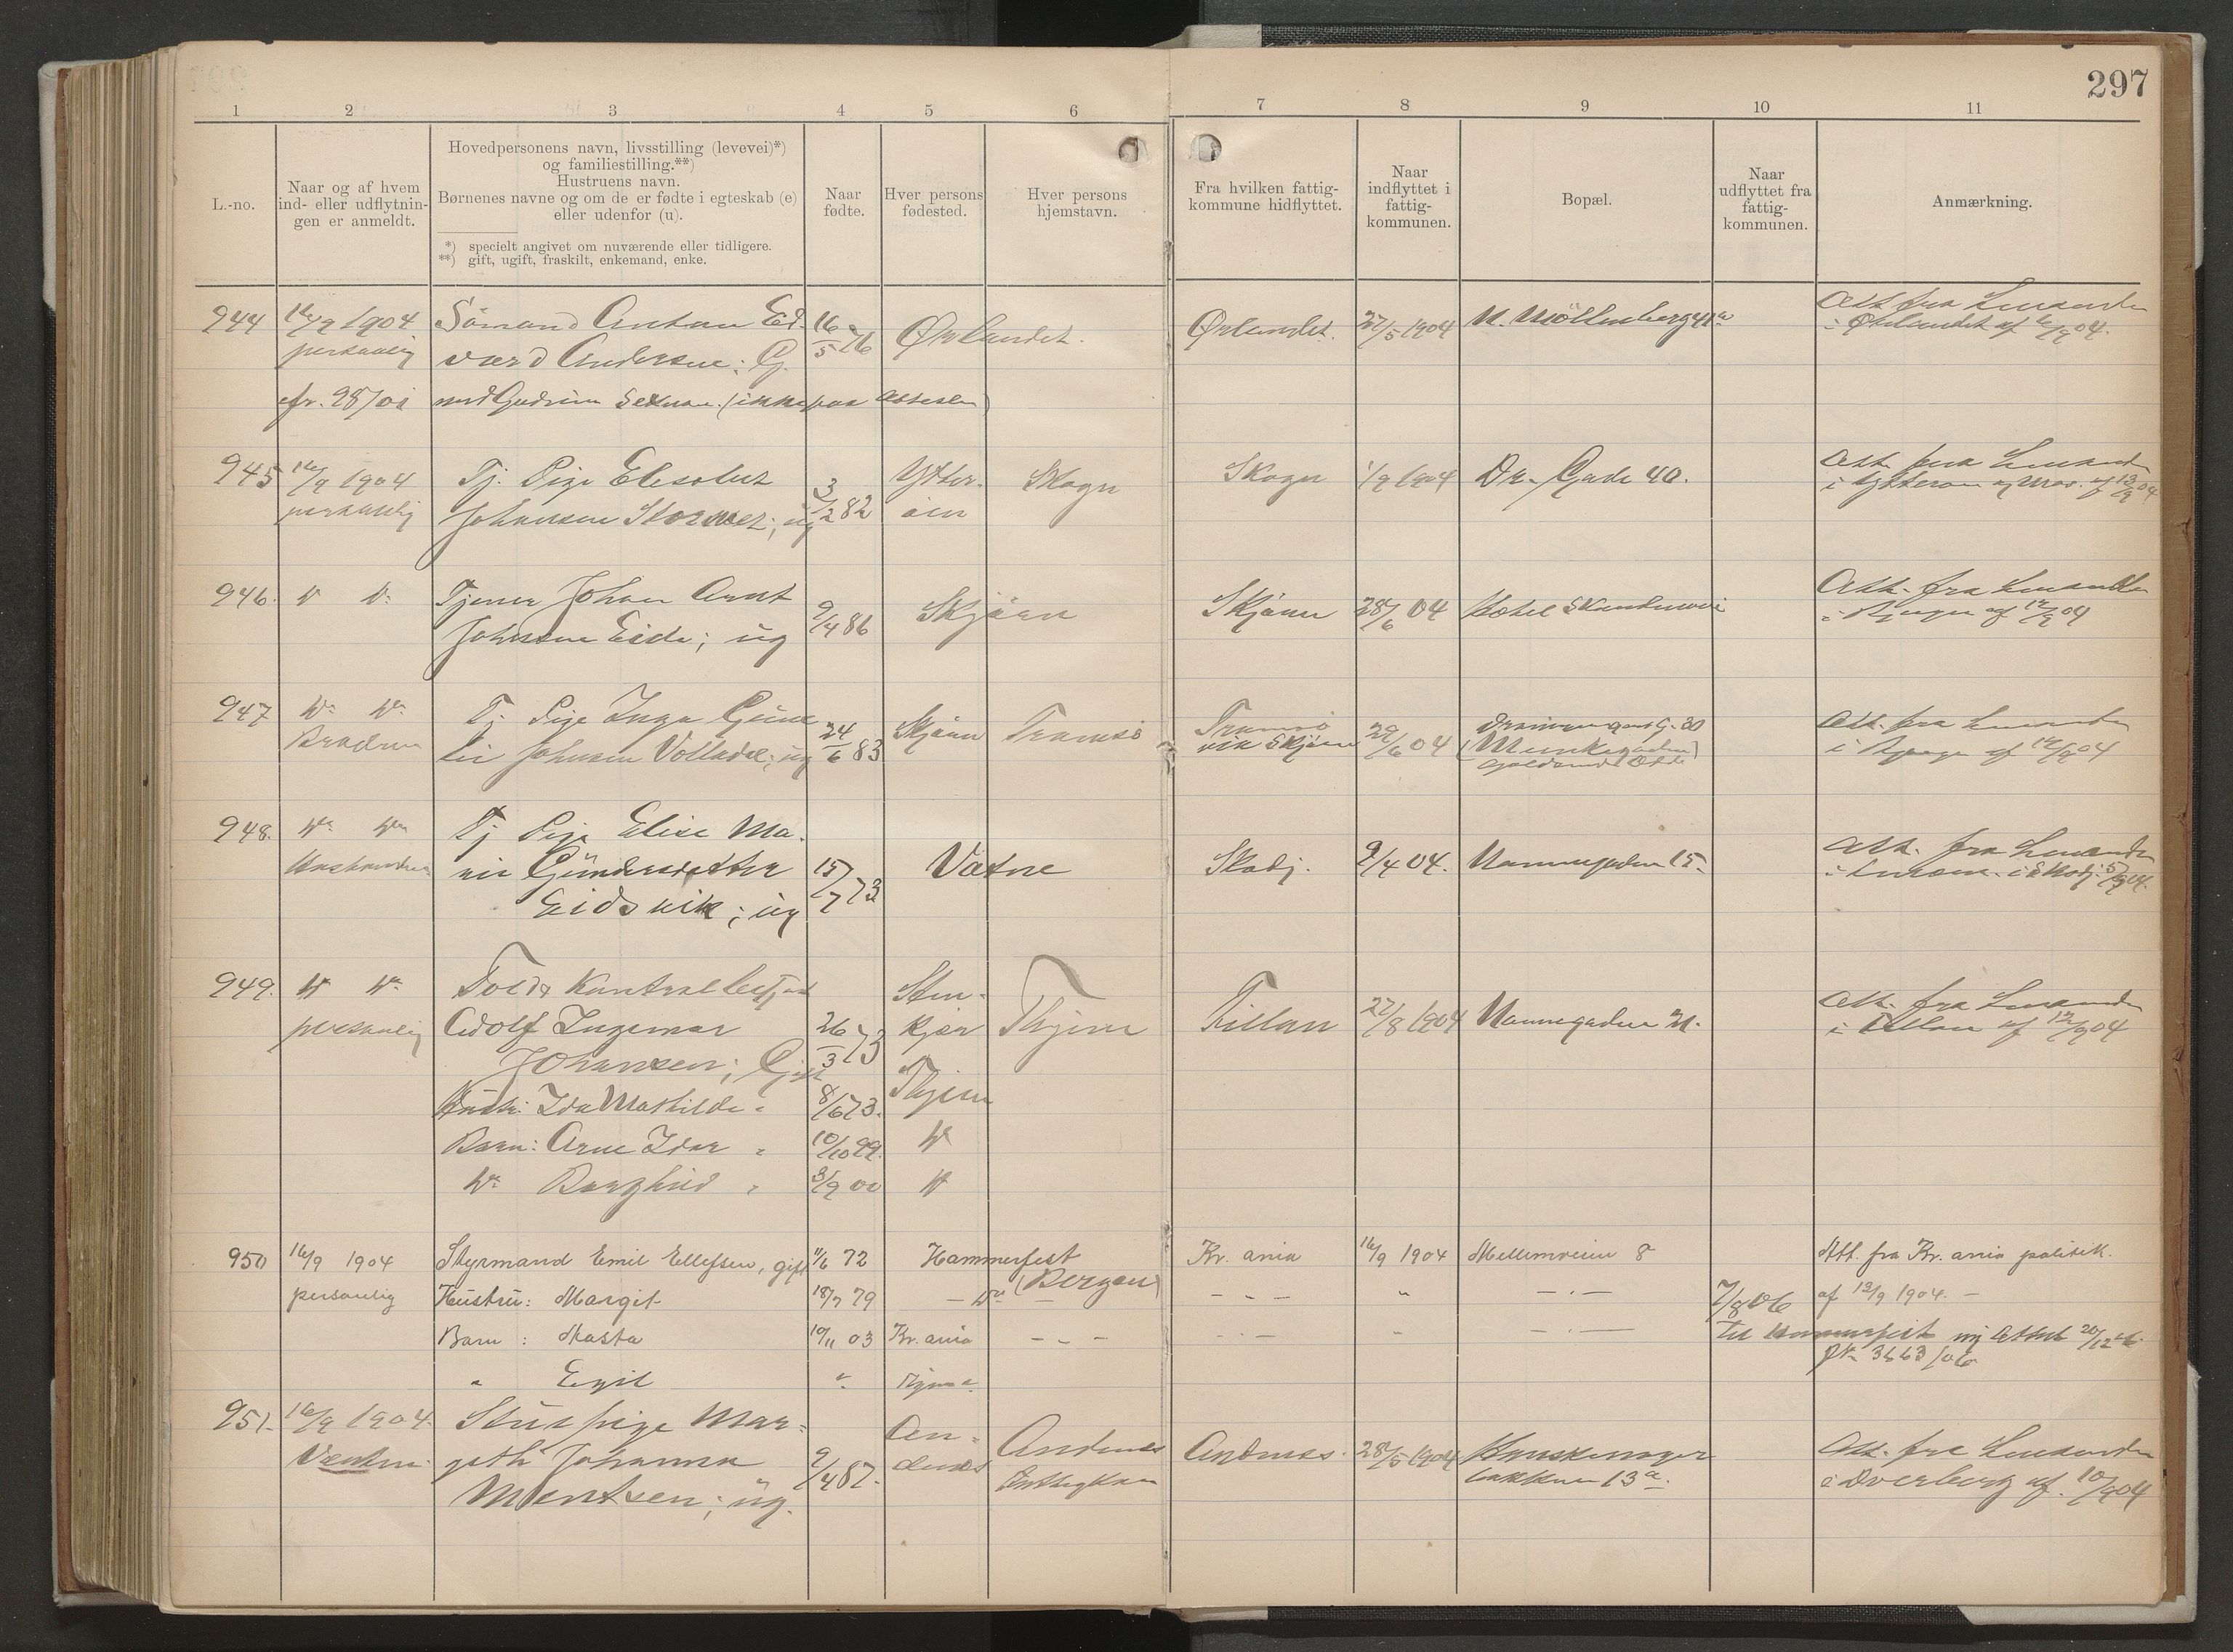 297
1 2 3 4 5 6 7 8 9 10 11
L.-no.
Naar og af hvem
ind- eller udflytnin-
gen er anmeldt.
Hovedpersonens navn, livsstilling (levevei)*)
og familiestilling.**)
Hustruens navn.
Børnenes navne og om de er fødte i egteskab (e)
eller udenfor (u).
*) specielt angivet om nuværende eller tidligere.
**) gift, ugift, fraskilt, enkemand, enke.
Naar
fødte.
Hver persons
fødested.
Hver persons
hjemstavn.
Fra hvilken fattig-
kommune hidflyttet.
Naar
indflyttet i
fattig-
kommunen.
Bopæl.
Naar
udflyttet fra
fattig-
kommunen.
Anmærkning.
944 16/9 1904 Sömand Anton Ed- 16/5 76 Ørlandet. Ørlandet. 27/5 1904 N. Möllenberg 41a Att. fra Lensmanden
personlig vard Andersen; G. i Ørlandet af 6/9 04.
cfr. 98/01 med Gudrun (ikke paa attesten)
945 16/9 1904 Tj. Pige Elesabet 3/2 82 Ytter- Skogn Skogn 1/9 1904 Dr. Gade 40. Att. fra Lensmanden
personlig Johansen Stormer; ug öen i Ytteröen og Mos. af 13/9 04
946. Do Do Tjener Johan Arnt 9/4 86 Skjörn Skjörn 28/6 04 Hotel Skandinavi Att. fra Lensmanden
Johnsen Eide; ug af 12/9 04
947 Do Do Tj. Pige Inga Gune 24/6 83 Skjörn Tromsö Tromsö 29/6 04 Dronningens G. 30 Att. fra Lensmanden
Broderen lie Johnsen Volladal; ug Skjörn (Munkegaden) af 12/9 04
948. Do Do Tj Pige Elise Ma- 15/7 73 Vatne Skodj. 9/4 04. Nannegaden 15. Att. fra Lensmanden
rie Gundersdatter i Skodj. 5/9 04.
Eidsvik; ug
949. Do Do Told & Kontrolbetjent Sten- Thjem Fillan 27/8 1904 Nannegaden 21. Att. fra Lensmanden
personlig Adolf Ingemar 26/3 73 kjær i Fillan af 12/9 04
Johansen; Gift
Hustr: Ida Mathilde " 8/6 73. Thjem
Barn: Arne Idar " 10/10 99. Do
Do Borghild " 3/9 00 Do
950 16/9 1904 Styrmand Emil Ellefsen, gift 11/6 72 Hammerfest Kr. ania 16/9 1904 Mellemveien 8 Att. fra Kr. ania politik.
personlig Hustru: Margit 18/7 79 — Do (Bergen) — " — " — . — 7/8 06 af 13/9 1904. —
Barn : Aasta 10/11 03 Kr. ania — " — — . — " — . — til Hammerfest attest 20/12 06
" Egil " Thjem Jr 3663/06
951. 16/9 1904. Stuepige Mar- An- Andenes Andenes. 28/5 1904 Hanskemager Att. fra Lensmanden
Værtinn. geth Johanna 9/4 87. denes bakken 13a. i Dverberg af. 10/9 04
Mentzen; ug.